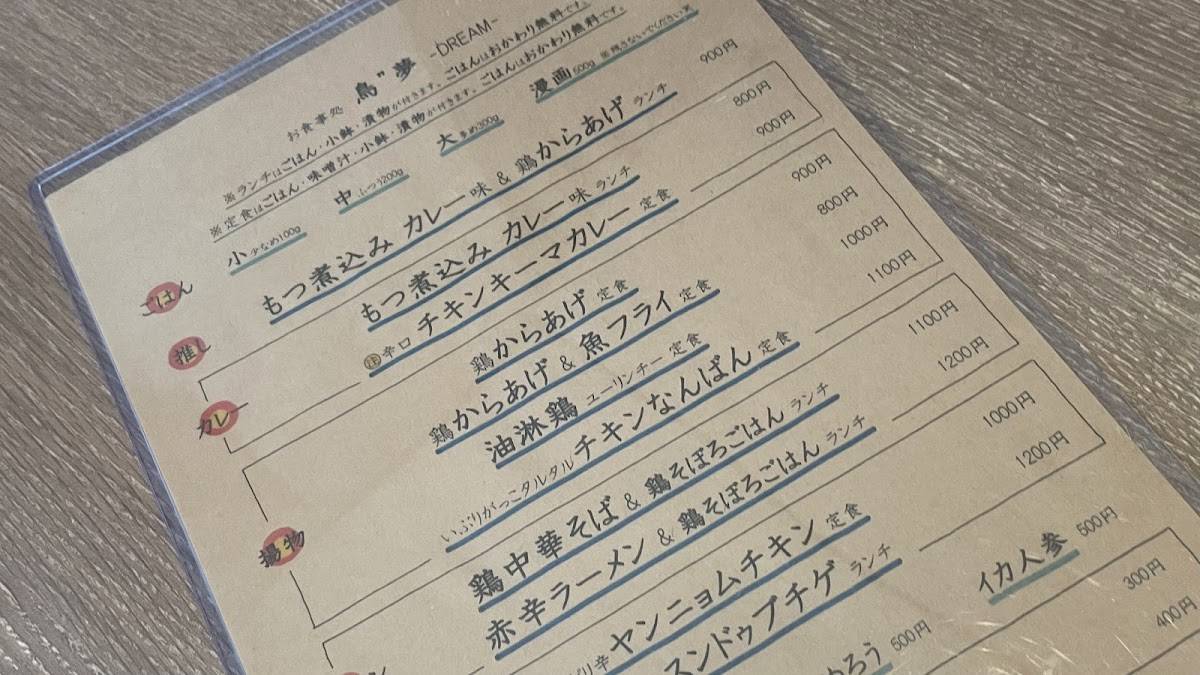 お食事処 鳥"夢 -DREAM-
※ランチはごはん・小鉢・漬物が付きます。ごはんはおかわり無料です。
※定食はごはん・味噌汁・小鉢・漬物が付きます。ごはんはおかわり無料です。
ごはん 小 少なめ100g 中 ふつう200g 大 多め300g 漫画 500g ※残さないでください※
推し もつ煮込み カレー味 & 鶏からあげ ランチ 900円
もつ煮込み カレー味 ランチ 800円
カレー 注 辛口 チキンキーマカレー 定食 900円
鶏からあげ 定食 900円
鶏からあげ & 魚フライ 定食 800円
揚物 油淋鶏 ユーリンチー 定食 1000円
いぶりがっこタルタル チキンなんばん 定食 1100円
鶏中華そば & 鶏そぼろごはん ランチ 1100円
赤辛ラーメン & 鶏そぼろごはん ランチ 1200円
辛 ヤンニョムチキン 定食 1000円
スンドゥブチゲ ランチ 1200円
500円 イカ人参 500円
300円
400円